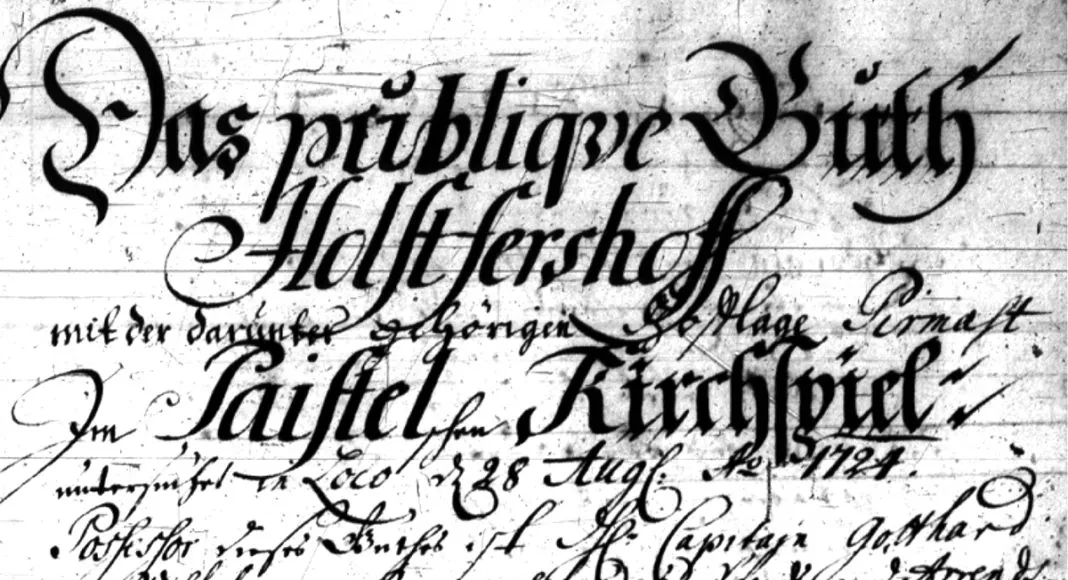 Das publiqve Guth
Holstfershoff
mit der darunter gehörigen Hofflage Pirmast
Im Paistelschen Kirchspiel
untersuchet in Loco d 28 Aug. Ao 1724.
Possessor dieses Guthes ist H. Capitain Gotthard